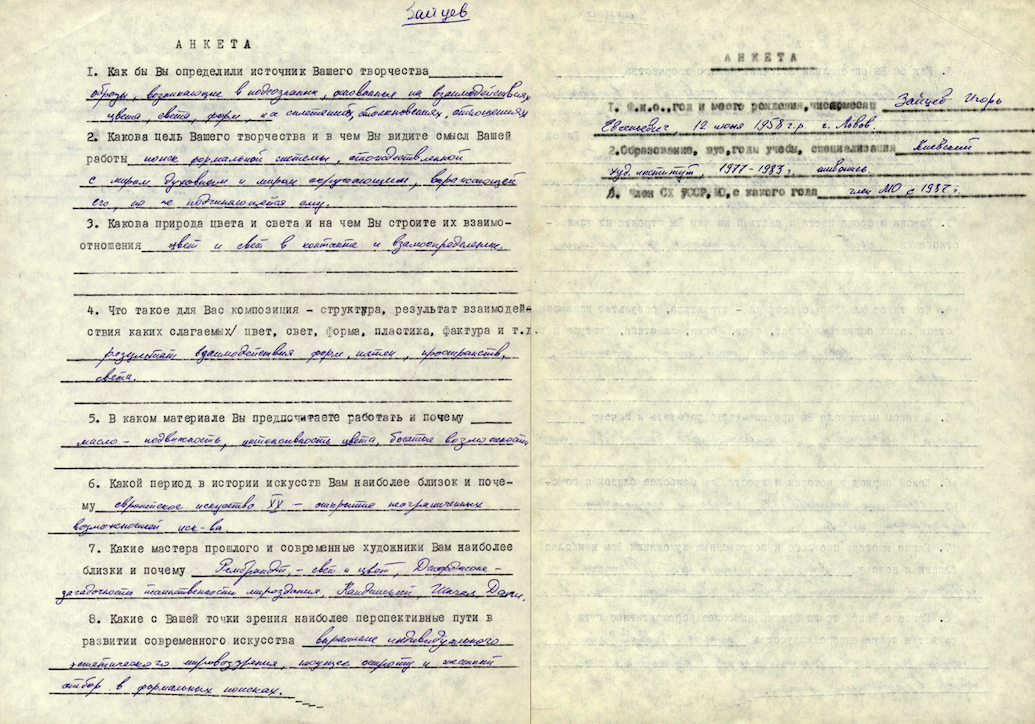 Зайцев
АНКЕТА
1. Как бы Вы определили источник Вашего творчества
образы, возникающие в подсознании, основанные на взаимодействиях
цвета, света, форм на сплетениях, столкновениях, отношениях
2. Какова цель Вашего творчества и в чем Вы видите смысл Вашей
работы поиск формальной системы, отождествленной
с миром духовным и миром окружающим, выражающей
его, но не подчиняющейся ему.
3. Какова природа цвета и света и на чем Вы строите их взаимо-
отношения цвет и свет в контакте и
4. Что такое для Вас композиция - структура, результат взаимодей-
ствия каких слагаемых/ цвет, свет, форма, пластика, фактура и т.д
результат взаимодействия форм, пятен, пространств,
света.
5. В каком материале Вы предпочитаете работать и почему
масло - подвижность, интенсивность цвета, богатые возможности
6. Какой период в истории искусств Вам наиболее близок и поче-
му европейское искусство XX - открытие неограниченных
возможностей иск-ва
7. Какие мастера прошлого и современные художники Вам наиболее
близки и почему Рембрандт, - свет и цвет, Джорджоне -
загадочность таинственность мироздания, Кандинский Шагал Дали.
8. Какие с Вашей точки зрения наиболее перспективные пути в
развитии современного искусства выражение индивидуального
эстетического мировоззрения, и
отбор в формальных поисках.
АНКЕТА
1. Ф.и.о., год и место рождения, число месяц Зайцев Игорь
Евсеевич, 12 июня 1958 г.р. г. Львов.
2. Образование, вуз, годы учебы, специализация Киевский
худ. институт, 1977-1983 г., живопись.
3. Член СХ УССР, МО, с какого года член МО с 1987 г.